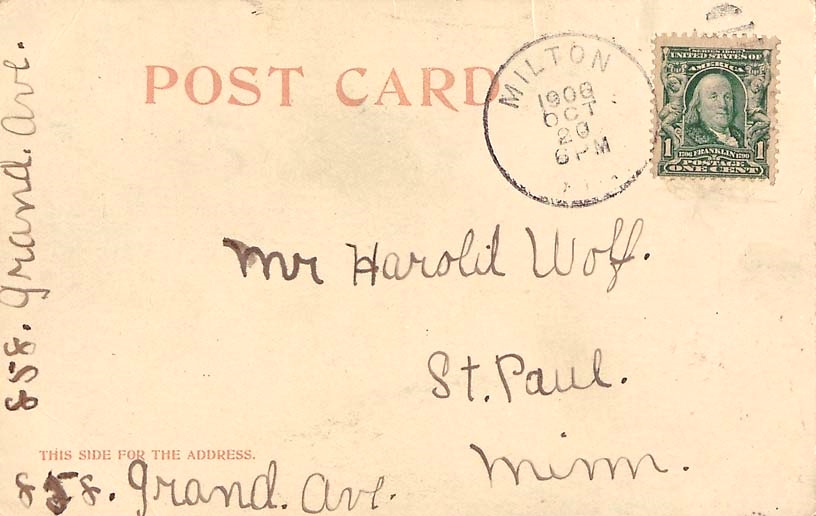 POST CARD
MILTON
OCT
20
6 PM
SERIES 1902
UNITED STATES OF
AMERICA
1706 FRANKLIN 1790
1 POSTAGE 1
ONE CENT
Mr Harold Wolf.
St. Paul.
Minn.
THIS SIDE FOR THE ADDRESS.
858. Grand. Ave.
858. Grand. Ave.